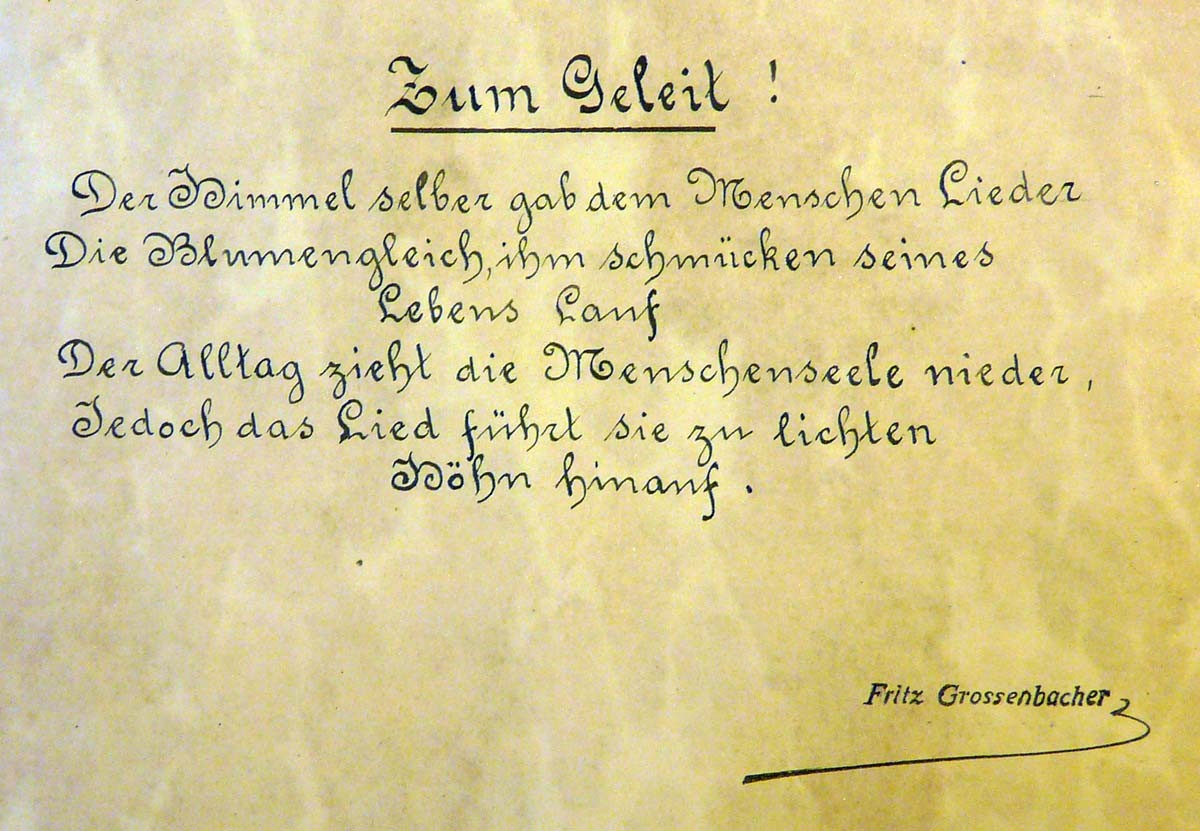 Zum Geleit !
Der Himmel selber gab dem Menschen Lieder
Die Blumengleich, ihm schmücken seines
Lebens Lauf
Der Alltag zieht die Menschenseele nieder,
Jedoch das Lied führt sie zu lichten
Höhn hinauf.
Fritz Grossenbacher